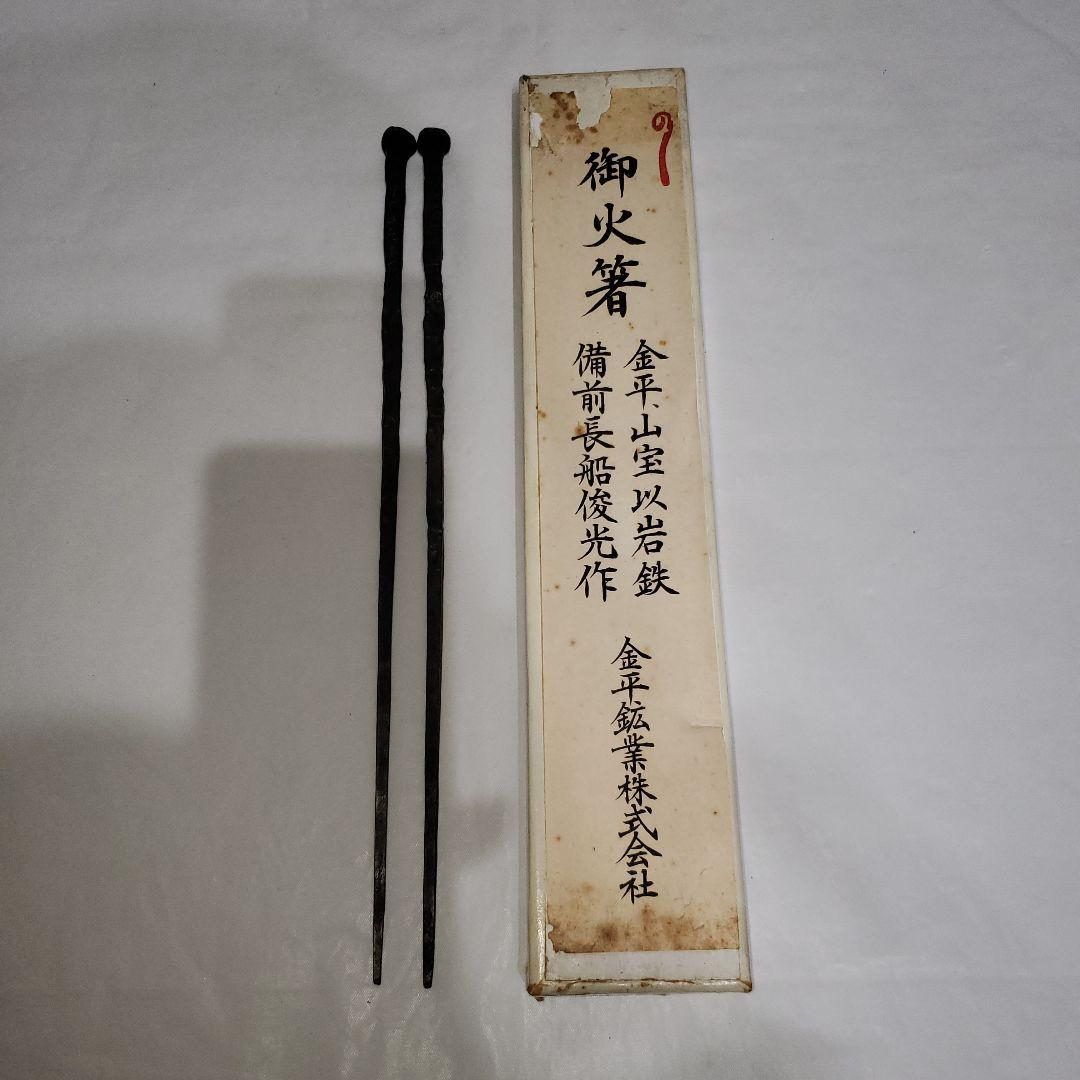 の
御火箸
金平山宝以岩鉄
備前長船俊光作
金平鉱業株式会社